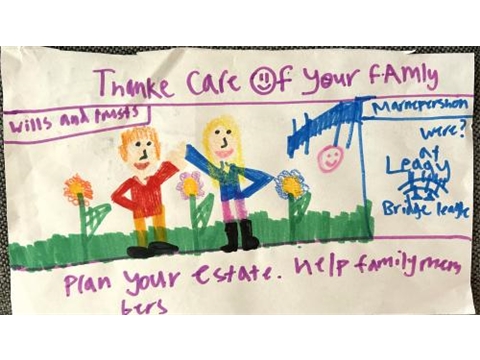 Thanke Care Of Your fAmly
wills and trusts
were?
at
Leagy
Bridge
Plan Your estate. help family mem
bers